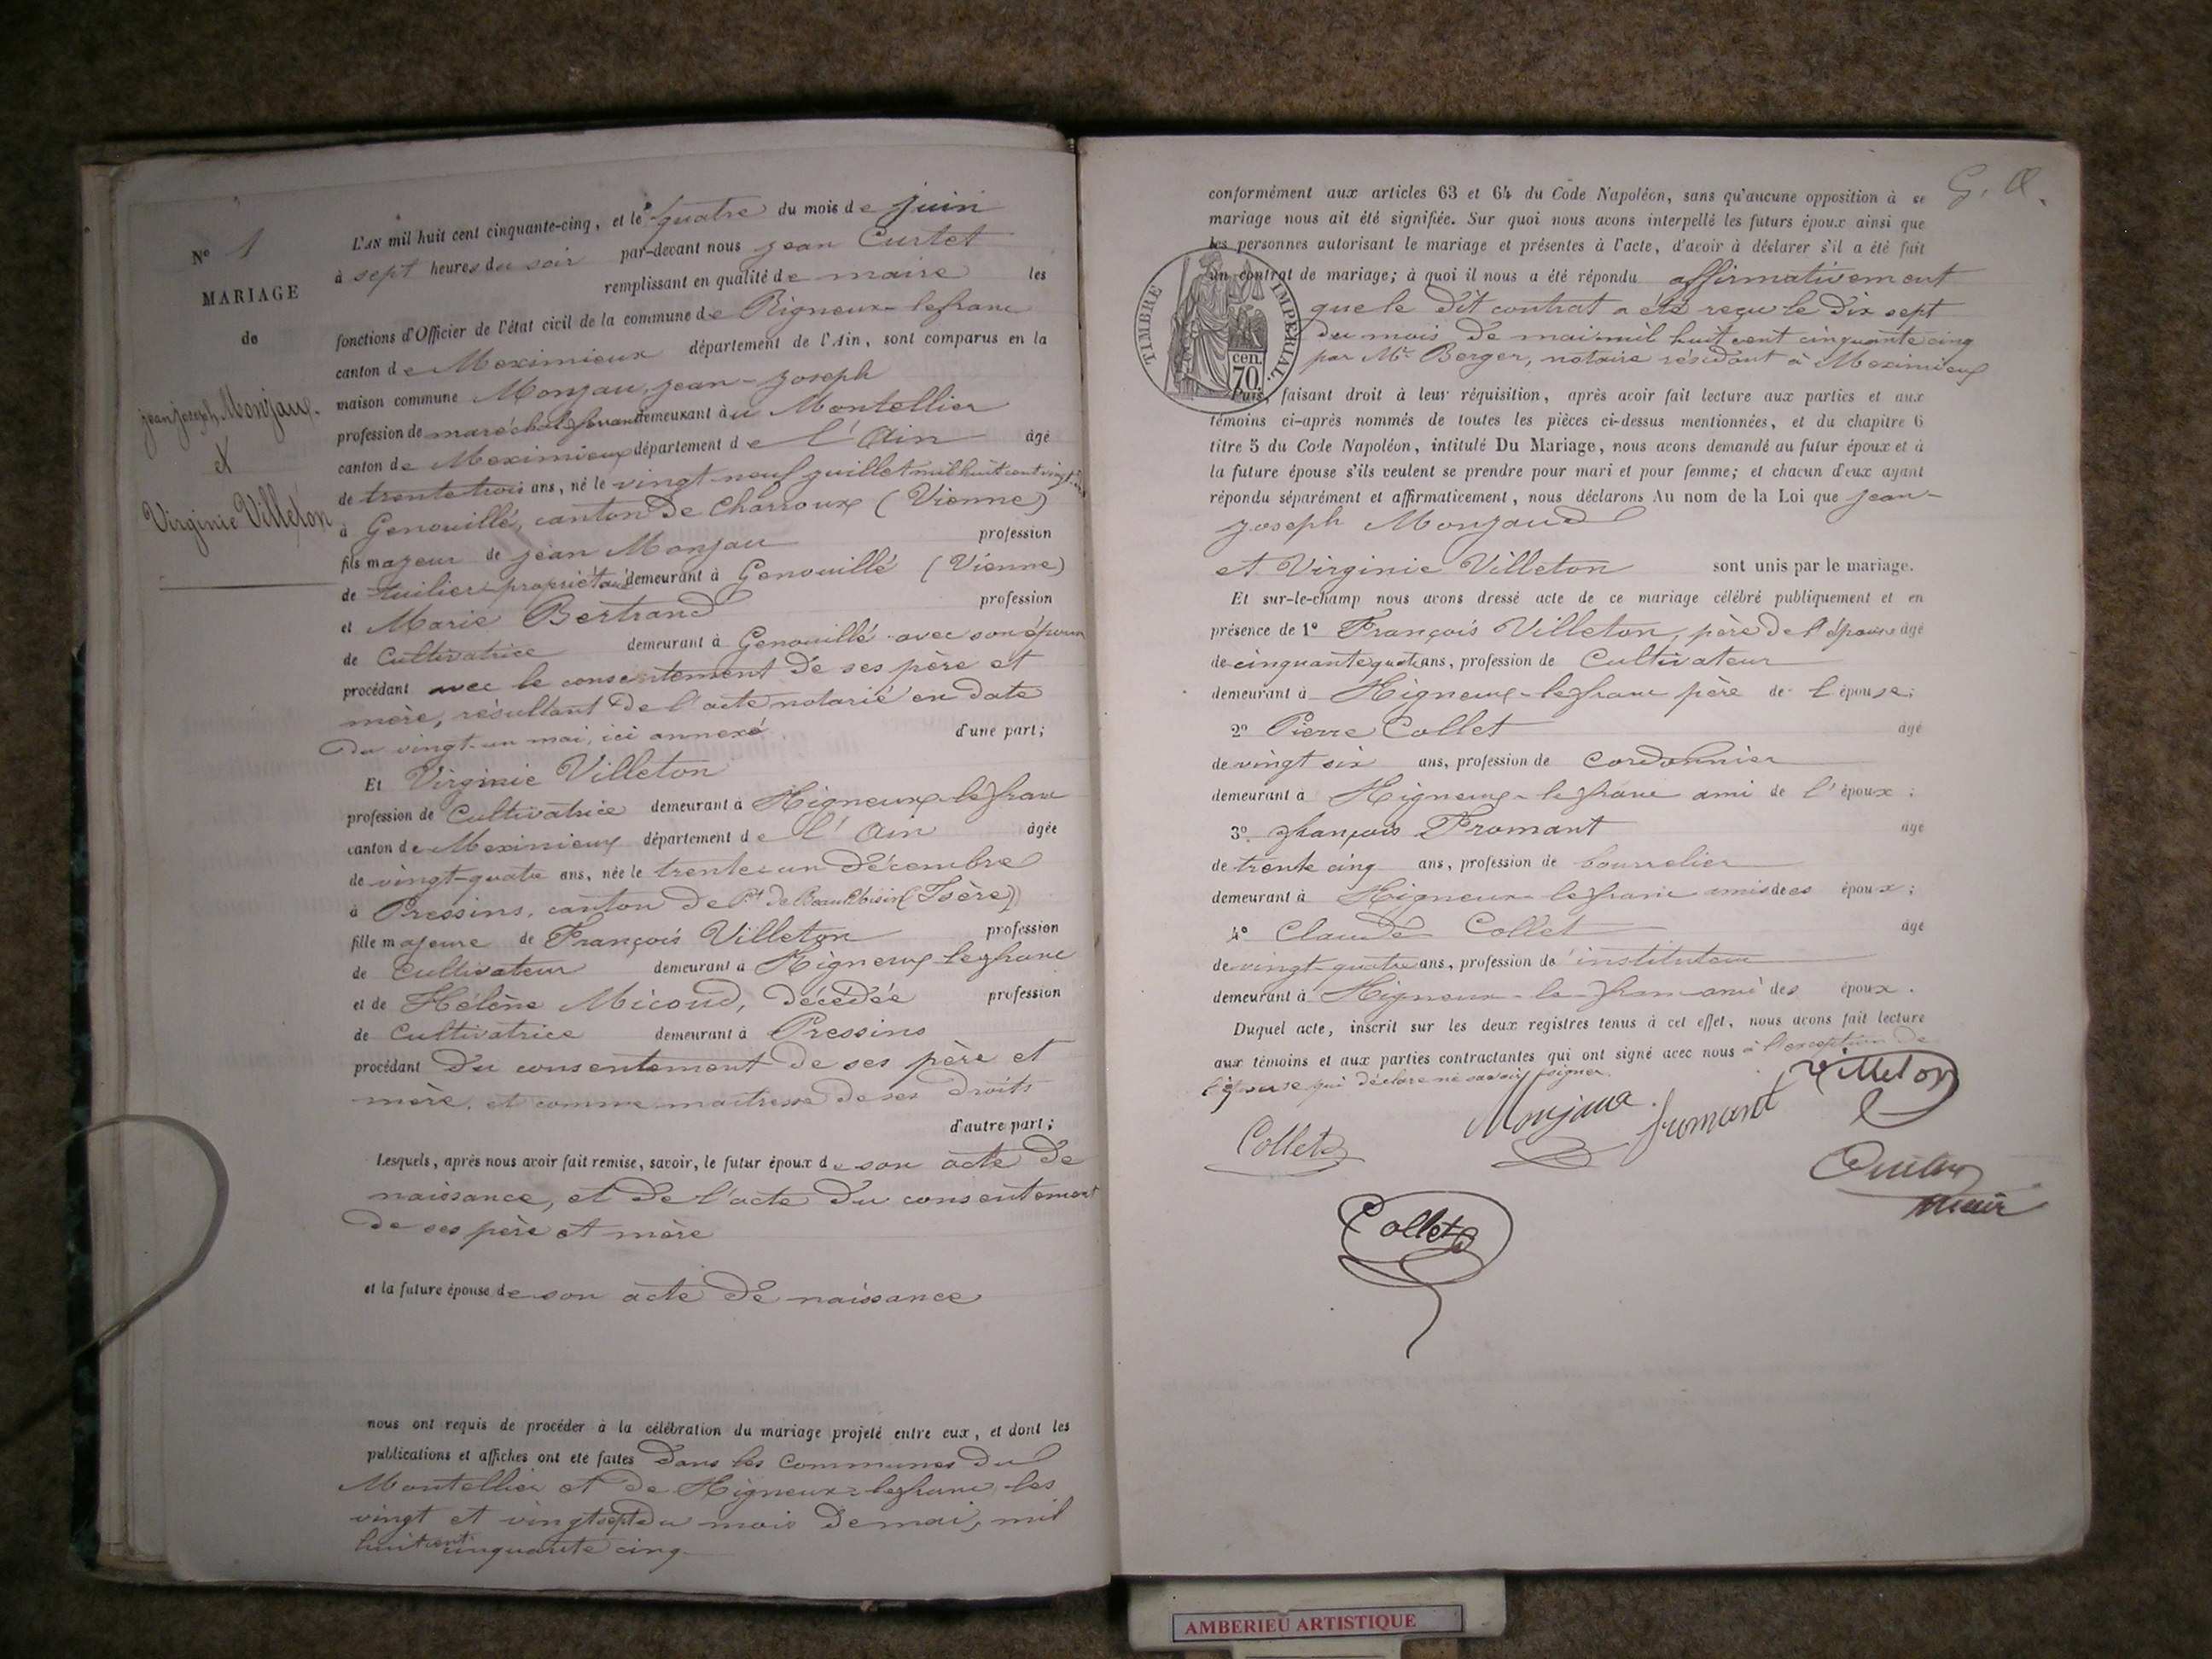 N° 1
MARIAGE
de
jean joseph Monjaux
et
Virginie Villeton
L'AN mil huit cent cinquante-cinq, et le quatre du mois de juin
à sept heures du soir par-devant nous jean Curtet
remplissant en qualité de maire les
fonctions d'Officier de l'état civil de la commune de Rigneux-lefranc
canton de Meximieux département de l'Ain, sont comparus en la
maison commune Monjau, jean-joseph
profession de maréchal ferrant demeurant à u Montellier
canton de Meximieux département de l'Ain âgé
de trente trois ans, né le vingt-neuf juillet mil huit cent vingt
à Genouillé, canton de Charroux (Vienne)
fils majeur de jean Monjau profession
de tuilier propriétaire demeurant à Genouillé (Vienne)
et Marie Bertrand profession
de Cultivatrice demeurant à Genouillé avec son époux
procédant avec le consentement de ses père et
mère, résultant de l'acte notarié en date
du vingt-un mai, ici annexé d'une part;
Et Virginie Villeton
profession de Cultivatrice demeurant à Rigneux-lefranc
canton de Meximieux département de l'Ain âgée
de vingt-quatre ans, née le trente-un décembre
à Pressins, canton de Pt de Beauvoisin (Isère)
fille majeure de François Villeton profession
de Cultivateur demeurant à Rigneux-lefranc
et de Hélène Micoud, décédée profession
de Cultivatrice demeurant à Pressins
procédant du consentement de ses père et
mère, et comme maitresse de ses droits
d'autre part;
Lesquels, après nous avoir fait remise, savoir, le futur époux de son acte de
naissance, et de l'acte du consentement
de ses père et mère
et la future épouse de son acte de naissance
nous ont requis de procéder à la célébration du mariage projeté entre eux, et dont les
publications et affiches ont été faites dans les Communes du
Montellier et de Rigneux-lefranc, les
vingt et vingt sept du mois de mai, mil
huit cent cinquante cinq
G. A.
conformément aux articles 63 et 64 du Code Napoléon, sans qu'aucune opposition à se
mariage nous ait été signifiée. Sur quoi nous avons interpellé les futurs époux ainsi que
les personnes autorisant le mariage et présentes à l'acte, d'avoir à déclarer s'il a été fait
un contrat de mariage; à quoi il nous a été répondu affirmativement
que le dit contrat a été reçu le dix sept
du mois de mai mil huit cent cinquante cinq
par Me Berger, notaire résidant à Meximieux
TIMBRE IMPÉRIAL.
cen.
70.
Puis, faisant droit à leur réquisition, après avoir fait lecture aux parties et aux
témoins ci-après nommés de toutes les pièces ci-dessus mentionnées, et du chapitre 6
titre 5 du Code Napoléon, intitulé Du Mariage, nous avons demandé au futur époux et à
la future épouse s'ils veulent se prendre pour mari et pour femme; et chacun d'eux ayant
répondu séparément et affirmativement, nous déclarons Au nom de la Loi que jean-
joseph Monjaud
et Virginie Villeton sont unis par le mariage.
Et sur-le-champ nous avons dressé acte de ce mariage célébré publiquement et en
présence de 1° François Villeton, père de l'épouse âgé
de cinquante quatre ans, profession de Cultivateur
demeurant à Rigneux-lefranc père de l'épouse;
2° Pierre Collet âgé
de vingt six ans, profession de cordonnier
demeurant à Rigneux-lefranc ami de l'époux;
3° françois Fromant âgé
de trente cinq ans, profession de bourrelier
demeurant à Rigneux-lefranc amis des époux;
4° Claude Collet âgé
de vingt-quatre ans, profession de instituteur
demeurant à Rigneux-le-franc ami des époux.
Duquel acte, inscrit sur les deux registres tenus à cet effet, nous avons fait lecture
aux témoins et aux parties contractantes qui ont signé avec nous à l'exception de
l'épouse qui déclare ne savoir signer.
Villeton
Monjaux fromant
Collet
Curtet
maire
Collet
AMBERIEU ARTISTIQUE